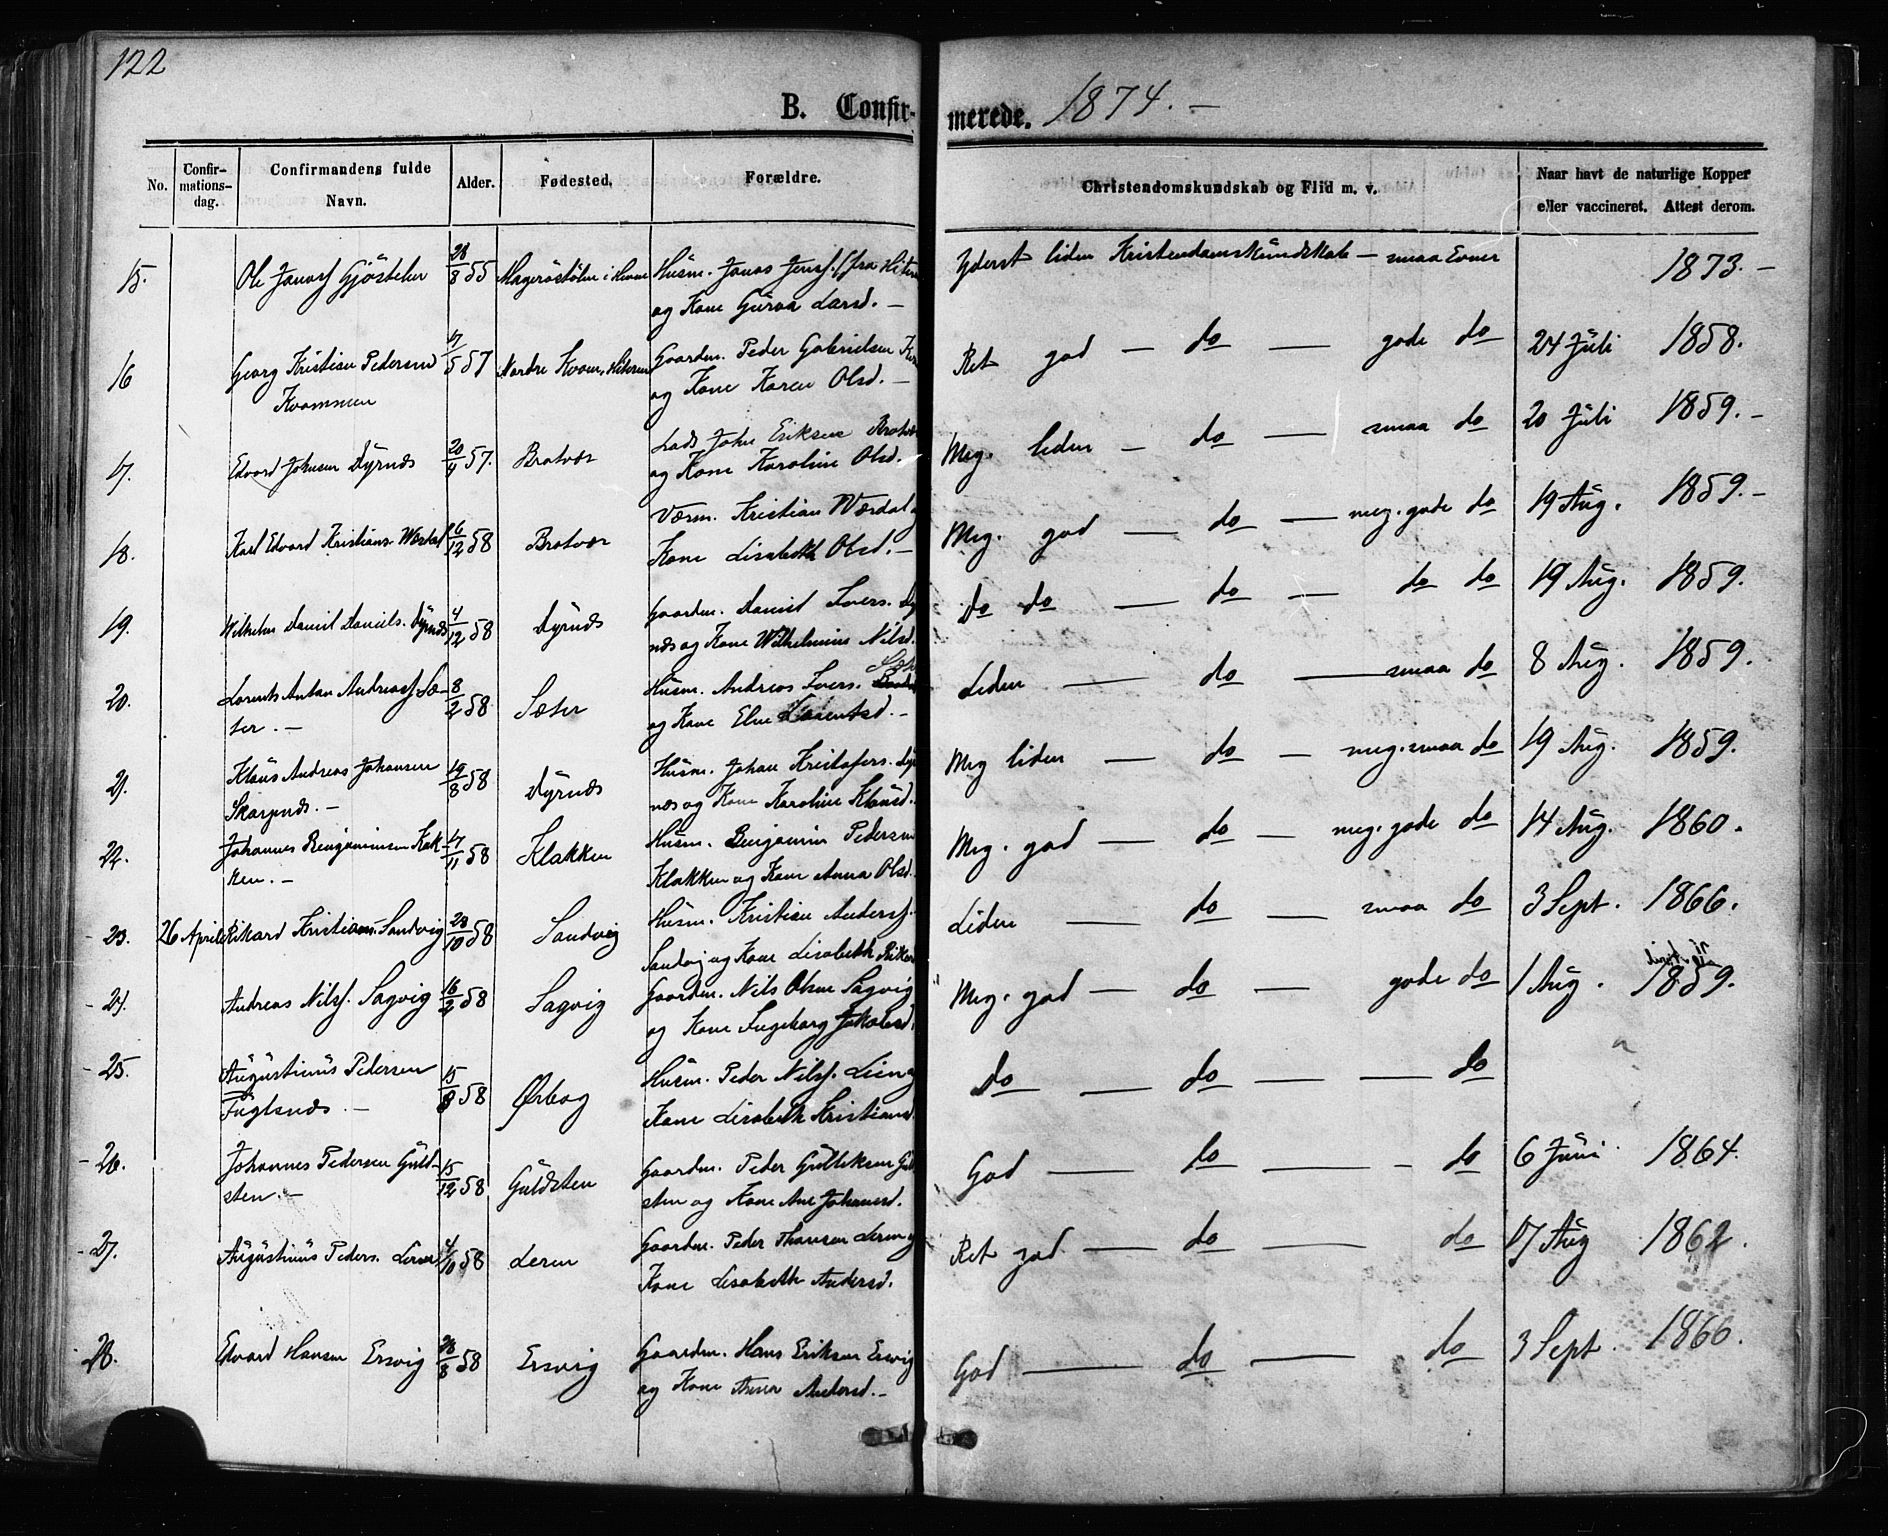 122
B. Confirmerede. 1874. –
No. Confirmationsdag. Confirmandens fulde Navn. Alder. Fødested. Forældre. Christendomskundskab og Flid m. v. Naar havt de naturlige Kopper eller vaccineret. Attest derom.
15. Ole Jonass Gjöstelen 28/8 55 i Hevne Husm. Jonas Jenss. fra Hiteren Yderst liden Kristendomskundskab – smaa Evner 1873. –
og Kone Gurva Larsd. –
16 Georg Kristian Pedersen 17/5 57 Nordre Kvam, Hiteren Gaardm. Peder Gabrielsen Ret god – do – gode do 24 Juli 1858.
Kvammen og Kone Karen Olsd. –
17. Edvard Johnsen Dyrnæs 20/4 57. Brotvær Lods John Eriksen Meg. liden – do – smaa do 20 Juli 1859. –
og Kone Karoline Olsd.
18. Karl Edvard Kristians. Wærdal 16/12 58 Brotvær Værm. Kristian Wærdal Meg. god – do – meg. gode do 19 Aug. 1859. –
Kone Lisabeth Olsd. –
19. Wilhelm Daniel Daniels. Dyrnæs 4/12 58 Dyrnæs Gaardm. Daniel Ivers. Dyr- Do do – do – do do 19 Aug. 1859.
næs og Kone Wilhelmine Nilsd.
20. Lorents Anton Andreass. Sæ- 8/2 58 Sæter Husm. Andreas Ivers. Liden – do – smaa do 8 Aug. 1859.
ter. – og Kone Elen Lorentsd. –
21. Klaus Andreas Johansen 19/8 58 Dyrnæs Husm. Johan Kristofers. Dyr- Meg liden – do – meg. smaa do 19 Aug. 1859.
Skarpnæs. – næs og Kone Karoline Klausd.
22. Johannes Benjaminsen Klak- 17/11 58 Klakken Husm. Benjamin Pedersen Meg. god – do – meg. gode do 14 Aug. 1860.
ken. – Klakken og Kone Anna Olsd.
23. 26 April Rikard Kristians. Sandvig 23/10 58 Sandvig Husm. Kristian Anderss. Liden – do – smaa do 3 Sept. 1866.
Sandvig og Kone Lisabeth
24. Andreas Nilss. Sagvig 16/2 58 Sagvig Gaardm. Nils Olsen Sagvig Meg. god – do – gode do 1 Aug. 1859.
og Kone Ingeborg Jakobsd.
25. Augustinus Pedersen 15/8 58 Ørbog Husm. Peder Nilss. Lien og do – do – – do
Fuglenæs. – Kone Lisabeth Kristiansd.
26. Johannes Pedersen Guld- 15/12 58 Guldsten Gaardm. Peder Gulliksen Guld- God – do – – do 6 Juni 1864.
sten. – sten og Kone Ane Johannesd.
27. Augustinus Peders. Leren 4/10 58 Leren Gaardm. Peder Thomsen Leren og Ret god – do – do 17 Aug 1862.
Kone Lisabeth Andersd.
28. Edvard Hansen Ersvig 28/8 58 Ersvig Gaardm. Hans Eriksen Ersvig God – do – do 3 Sept. 1866.
og Kone Anna Andersd. –